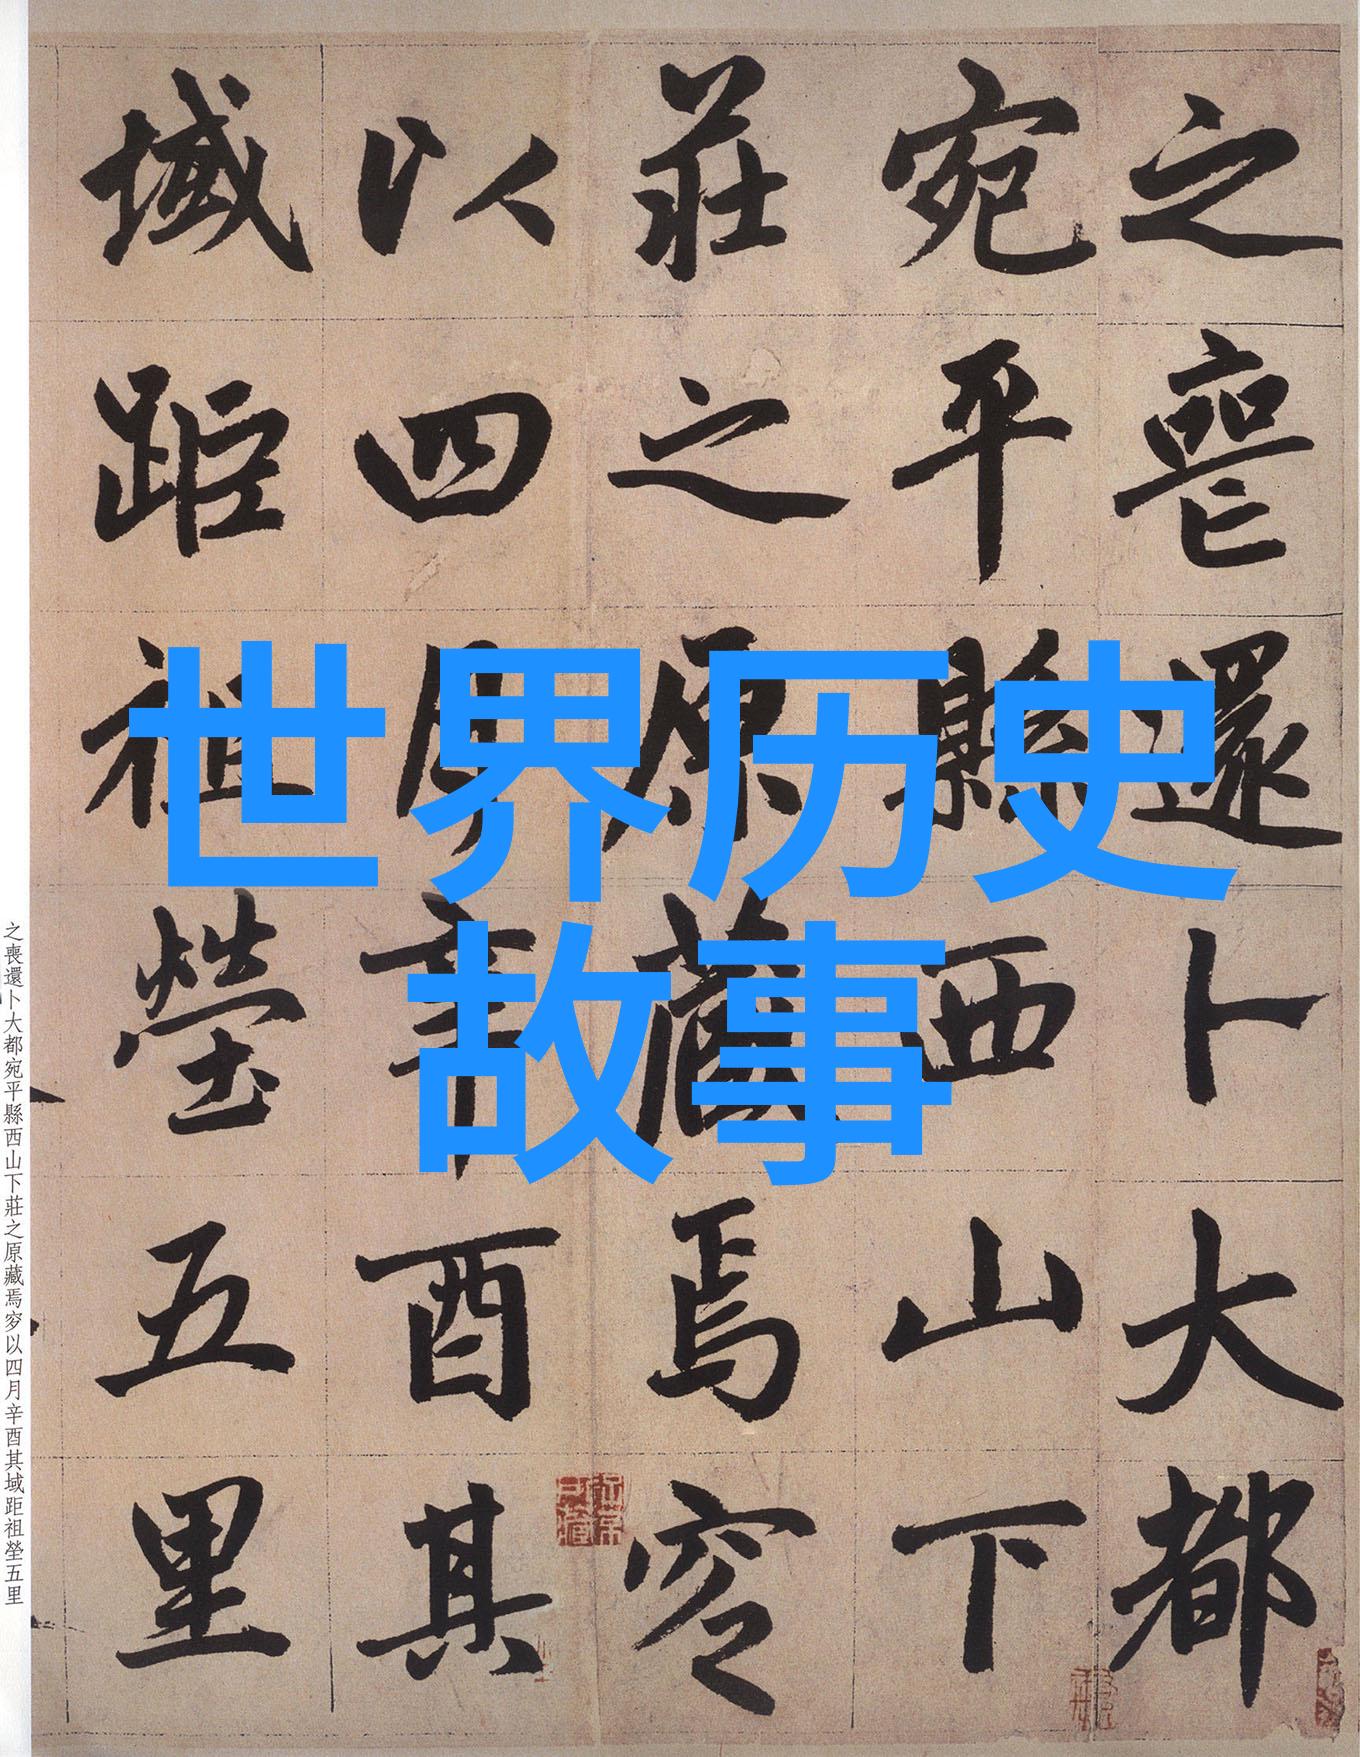 之喪還卜大都
宛平縣西山下
莊之原藏焉窆
以四月辛酉其
域距祖塋五里
世界历史
故事
之喪還卜大都宛平縣西山下莊之原藏焉窆以四月辛酉其域距祖塋五里